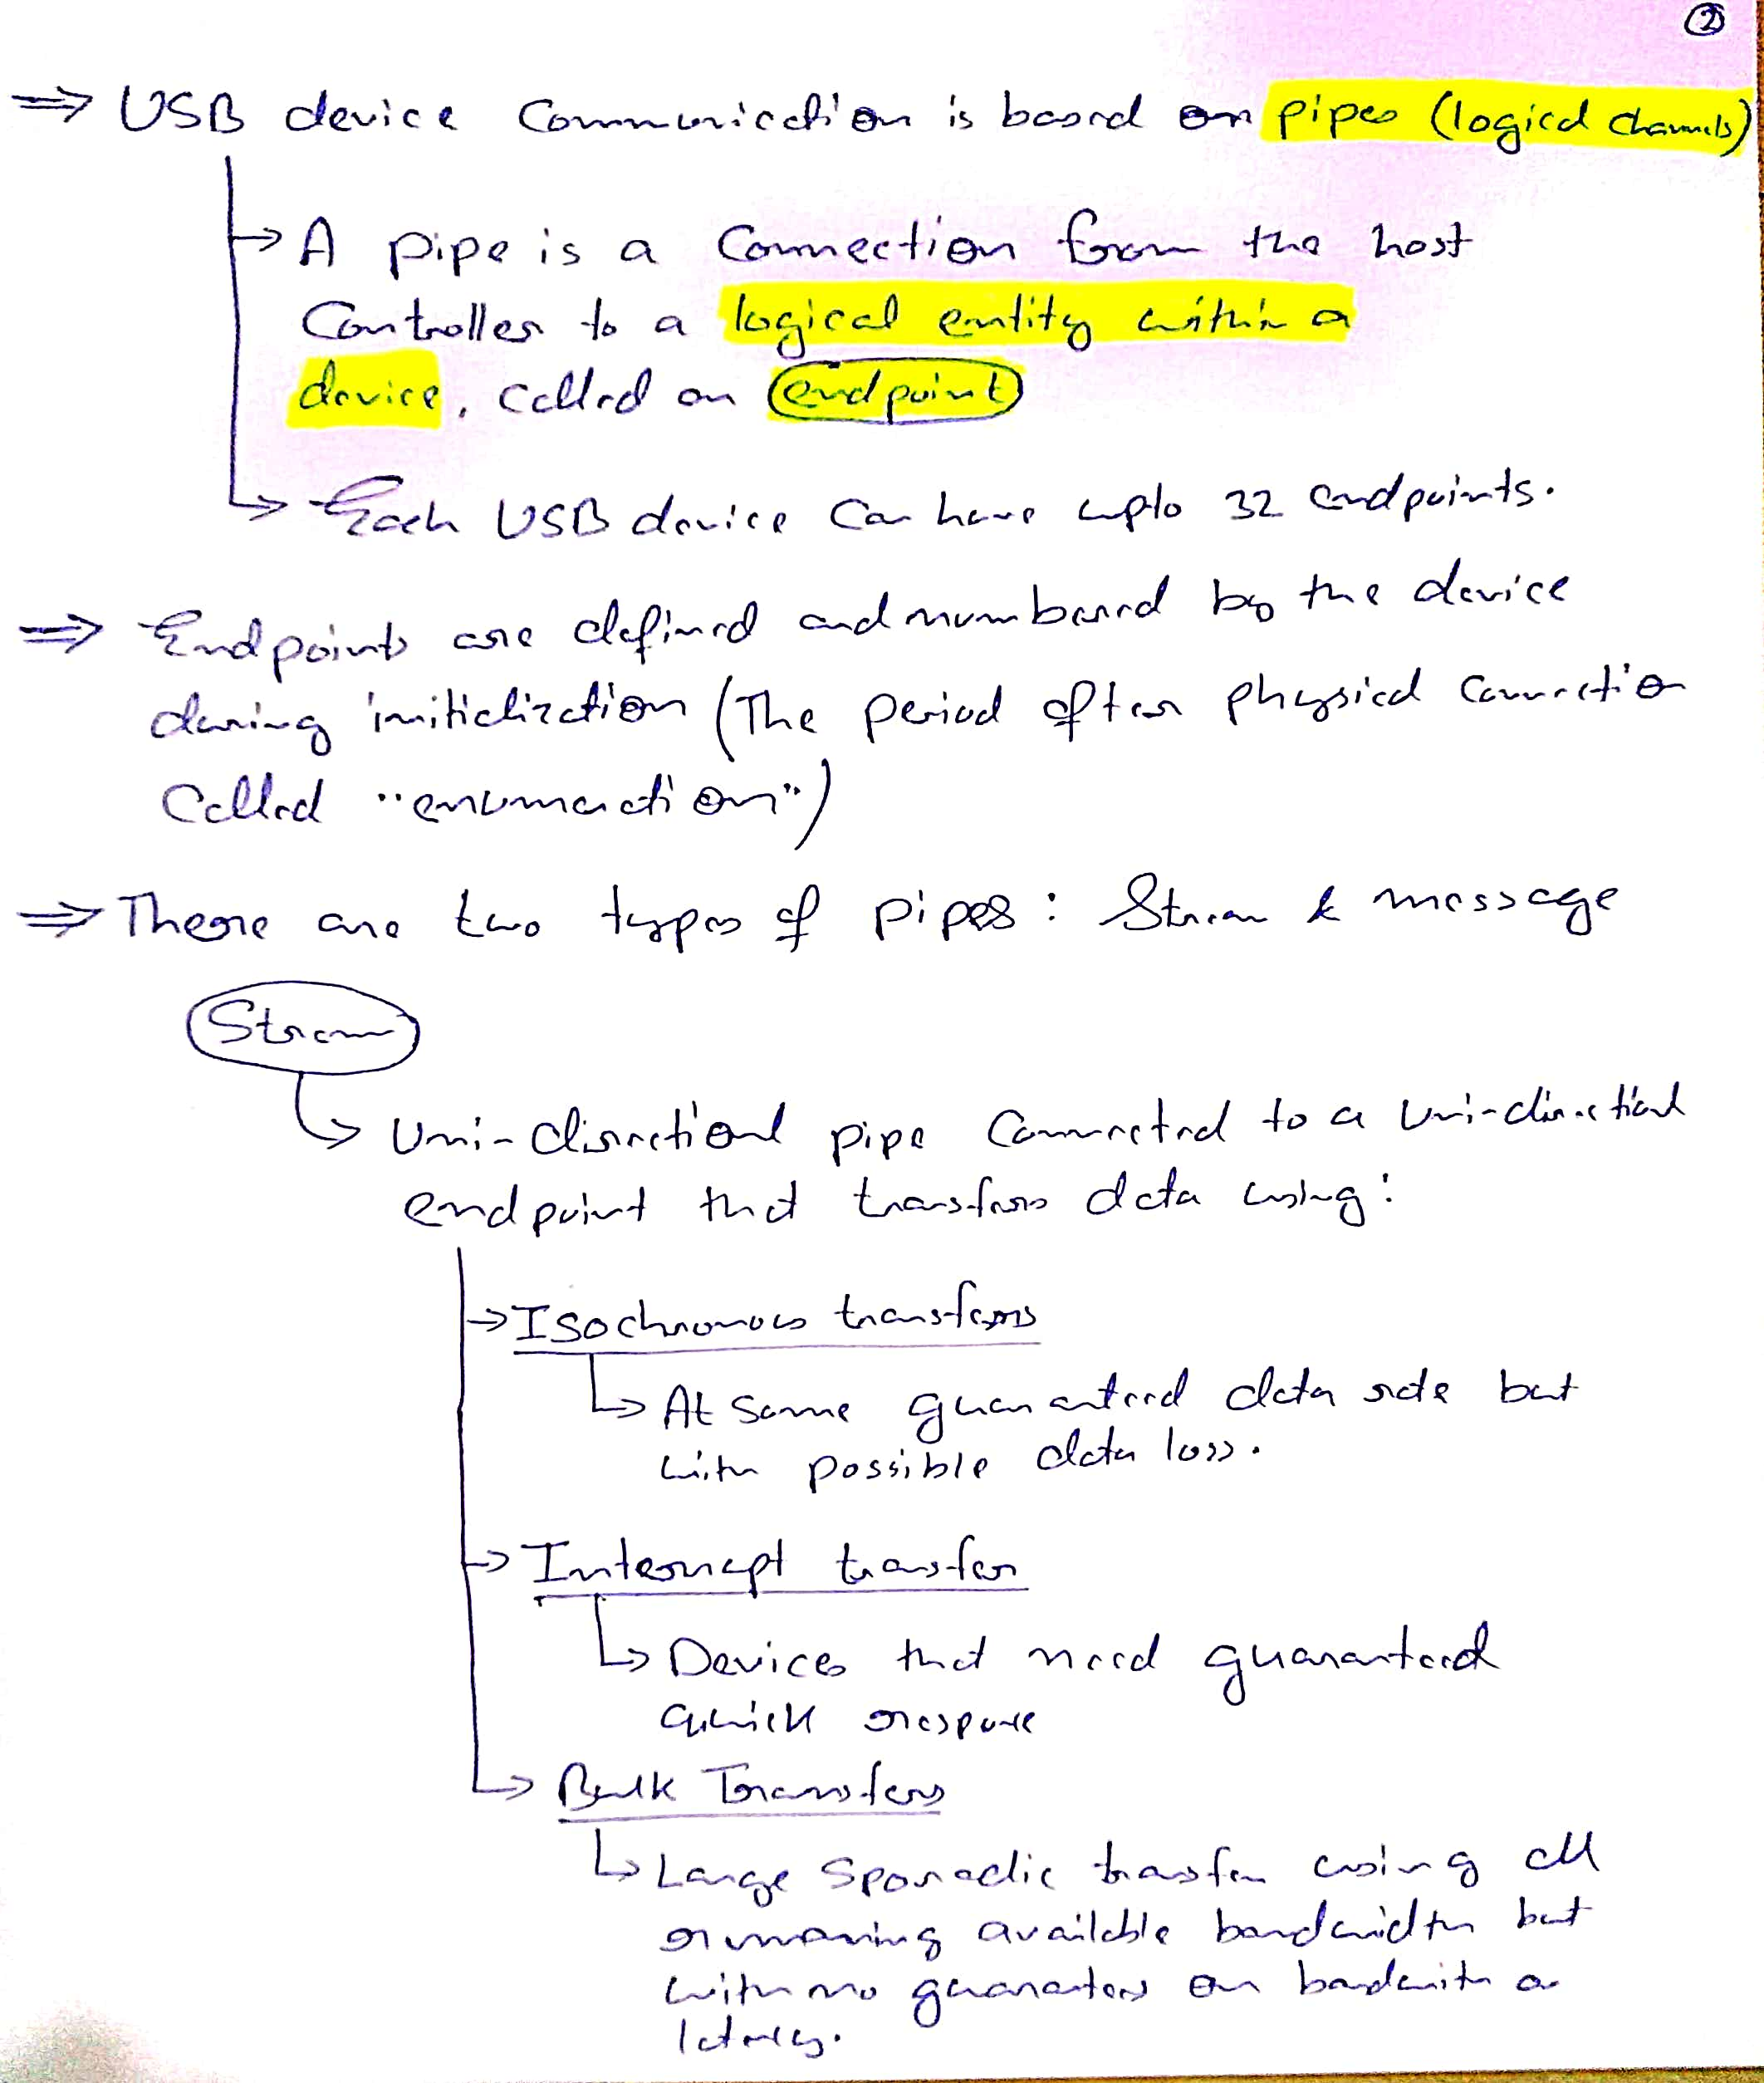 ②
⇒ USB device Communication is based on pipes (logical channels)
→ A pipe is a Connection from the host
Controller to a logical entity within a
device, called an endpoint
↳ Each USB device Can have upto 32 endpoints.
⇒ Endpoints are defined and numbered by the device
during initialization (The period after physical Connection
Called "enumeration")
⇒ There are two types of pipes: Stream & message
Stream
↳ Uni-directional pipe Connected to a Uni-directional
endpoint that transfers data using:
→ Isochronous transfers
↳ At some guaranteed data rate but
with possible data loss.
→ Interrupt transfer
↳ Devices that need guaranteed
quick response
↳ Bulk Transfers
↳ Large Sporadic transfer using all
remaining available bandwidth but
with no guarantees on bandwith or
latency.